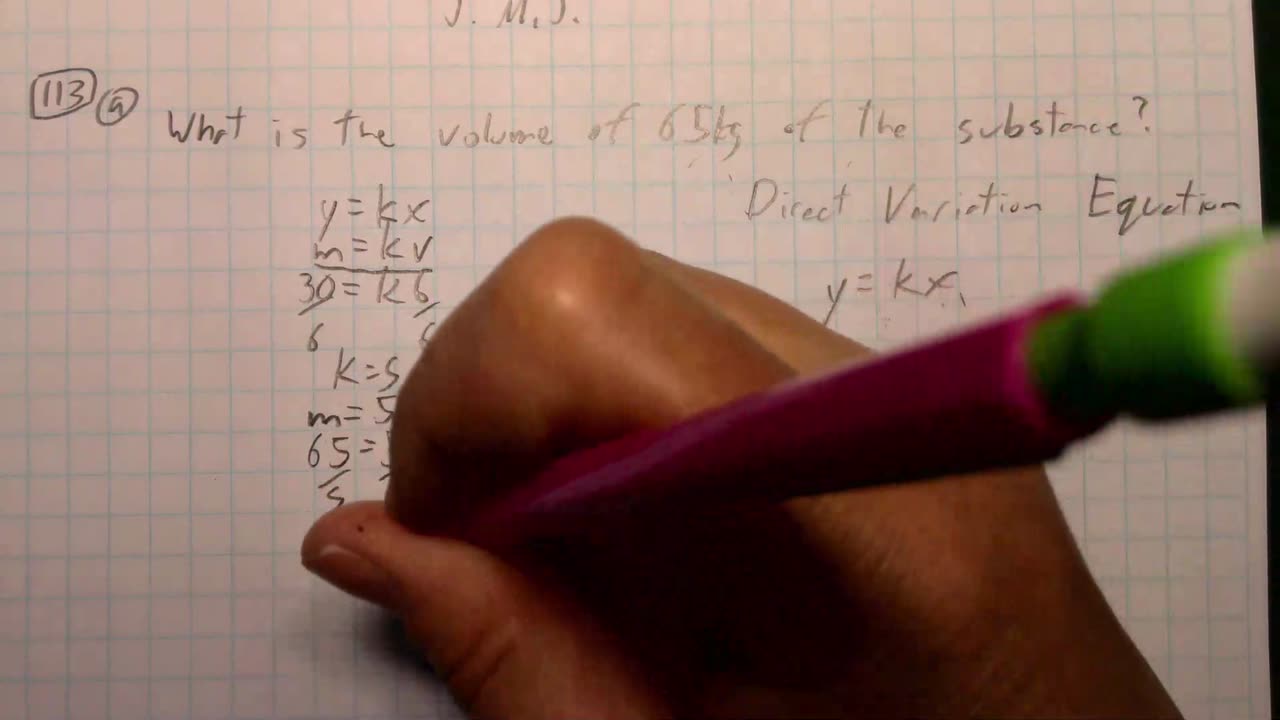 J. M. J.
113 a What is the volume of 65kg of the substance?
Direct Variation Equation
y = kx
y = kx
m = kv
30 = k6
6 6
k = 5
m = 5
65 =
5